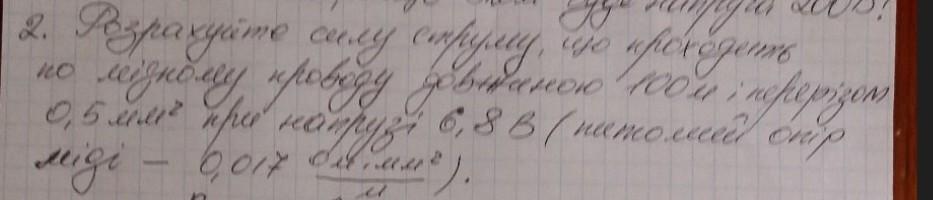 буде напруга 200В?
2. Розрахуйте силу струму, що проходить
по мідному проводу довжиною 100м і перерізом
0,5 мм² при напрузі 6,8 В (питомий опір
міді – 0,017 Ом·мм²/м).